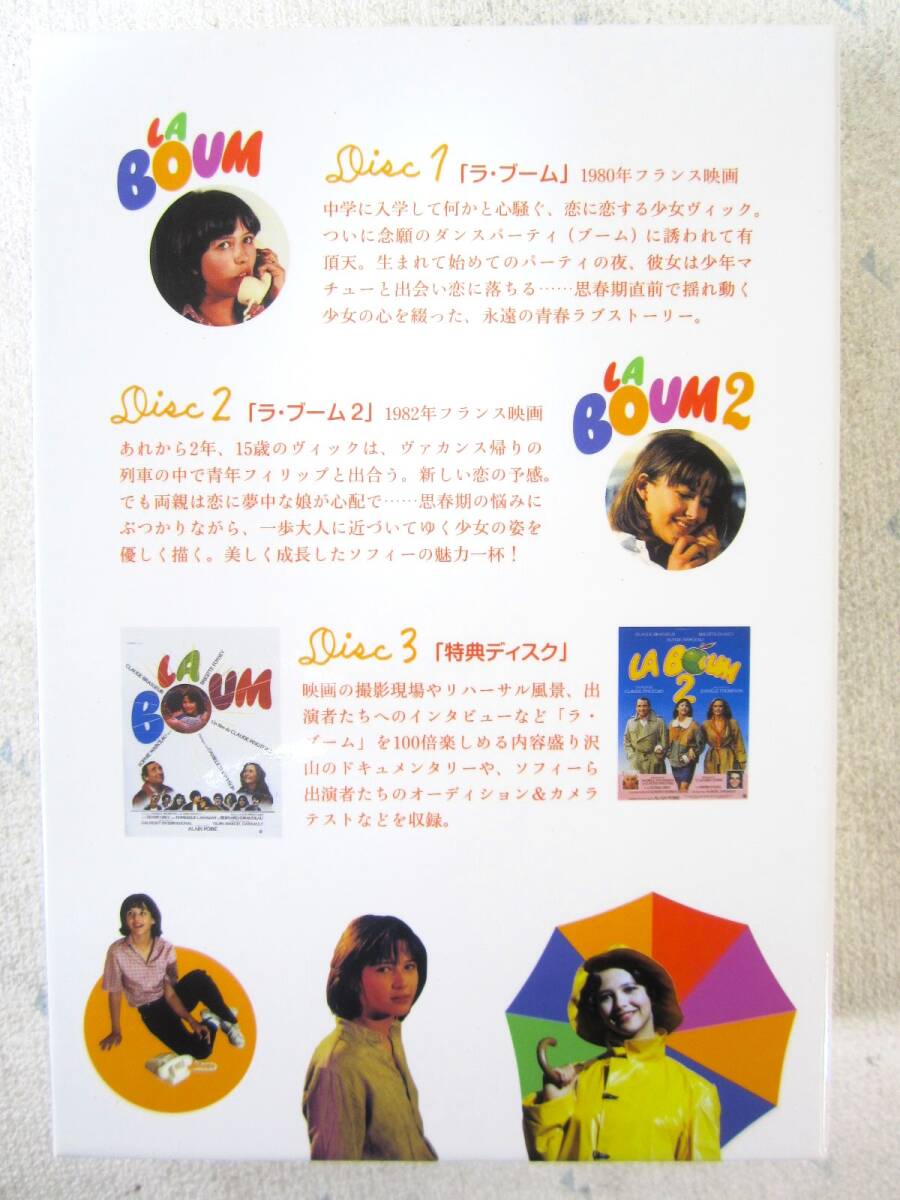 LA
BOUM
Disc 1 「ラ・ブーム」 1980年フランス映画
中学に入学して何かと心騒ぐ、恋に恋する少女ヴィック。
ついに念願のダンスパーティ(ブーム)に誘われて有
頂天。生まれて始めてのパーティの夜、彼女は少年マ
チューと出会い恋に落ちる……思春期直前で揺れ動く
少女の心を綴った、永遠の青春ラブストーリー。
LA
BOUM2
Disc 2 「ラ・ブーム2」 1982年フランス映画
あれから2年、15歳のヴィックは、ヴァカンス帰りの
列車の中で青年フィリップと出合う。新しい恋の予感。
でも両親は恋に夢中な娘が心配で……思春期の悩みに
ぶつかりながら、一歩大人に近づいてゆく少女の姿を
優しく描く。美しく成長したソフィーの魅力一杯!
Disc 3 「特典ディスク」
映画の撮影現場やリハーサル風景、出
演者たちへのインタビューなど「ラ・
ブーム」を100倍楽しめる内容盛り沢
山のドキュメンタリーや、ソフィーら
出演者たちのオーディション&カメラ
テストなどを収録。
LA
BOUM
CLAUDE BRASSEUR
BRIGITTE FOSSEY
ALAIN POIRÉ
LA BOUM
2
CLAUDE BRASSEUR
BRIGITTE FOSSEY
ALAIN POIRÉ